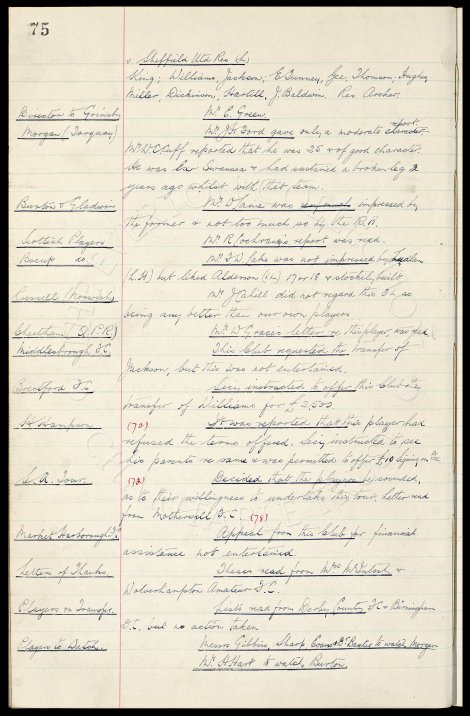 75
v. Sheffield Utd Res (h)
King; Williams, Jackson; E. Gunner, Gee, Thomson; Hughes,
Miller, Dickinson, Hartill, J. Baldwin. Res. Archer.
Director to Grimsby Mr. E. Green.
Morgan (Torquay) Mr. J. H. Ford gave only a moderate character report.
Mr W. C. Cuff reported that he was 25 & of good character.
He was ex Swansea & had sustained a broken leg 2
years ago whilst with that team.
Burton & Gladwin Mr. was very much impressed by
the former & not too much so by the R.H.
Scottish Players Mr. R. Cochrane's report was read.
Bacup do. Mr. was not impressed by
(L.H) but liked Alderson (i.L) 17 or 18 & stockily built
Russell (Norwich) Mr. J. Cahill did not regard this I.L. as
being any better than our own players
Cheetham (Q.P.R) Mr. W. Grase's letter re this player, was read.
Middlesbrough F.C. This Club requested the transfer of
Jackson, but this was not entertained.
Brentford F.C Secy instructed to offer this Club the
transfer of Williams for £2,500.
H. Hampson (72) It was reported that this player had
refused the terms offered. Secy. instructed to see
his parents re same & was permitted to offer £10 signing on fee
S.A. Tour. (72) Decided that the players be sounded,
as to their willingness to undertake this tour, letter read
from Motherwell F.C. (78)
Market Harborough F.C Appeal from this Club for financial
assistance not entertained.
Letters of Thanks. These read from Mrs McIntosh &
Wolverhampton Amateur F.C.
Players on Transfer. Lists read from Derby County F.C & Birmingham
F.C. but no action taken
Players to Watch. Messrs Gibbins, Sharp, Evans & to watch Morgan
Mr. H. Hart to watch Burton.